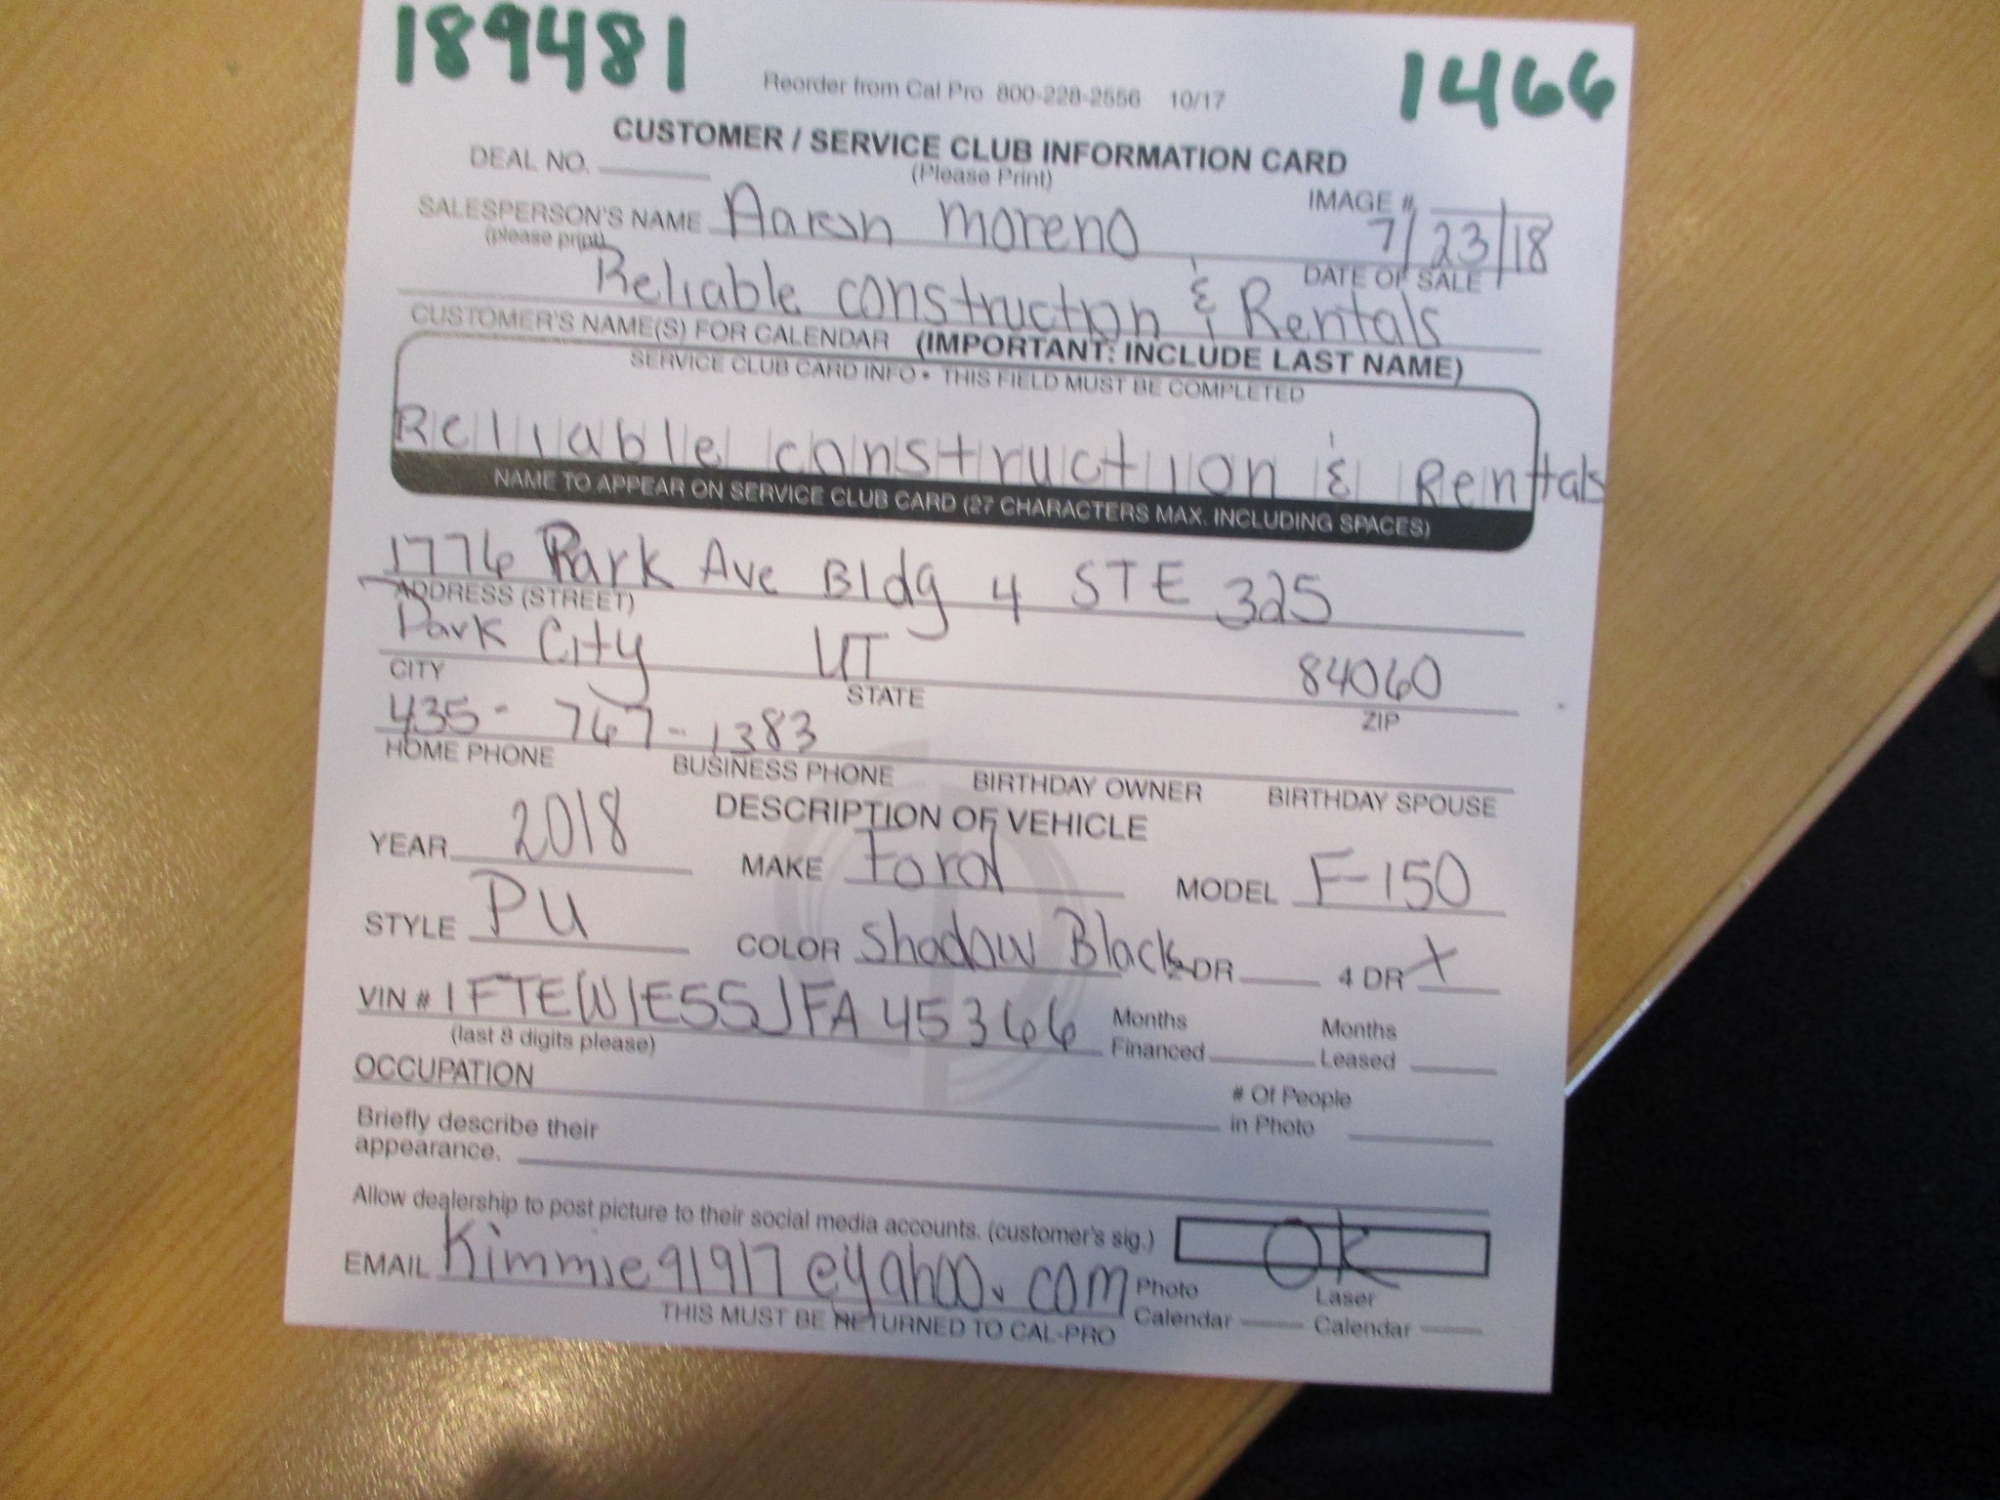 189481 1466
Reorder from Cal Pro 800-228-2556 10/17
CUSTOMER / SERVICE CLUB INFORMATION CARD
(Please Print)
DEAL NO.
IMAGE #
SALESPERSON'S NAME Aaron Moreno 7/23/18
(please print)
DATE OF SALE
Reliable construction & Rentals
CUSTOMER'S NAME(S) FOR CALENDAR (IMPORTANT: INCLUDE LAST NAME)
SERVICE CLUB CARD INFO • THIS FIELD MUST BE COMPLETED
Reliable construction & Rentals
NAME TO APPEAR ON SERVICE CLUB CARD (27 CHARACTERS MAX. INCLUDING SPACES)
1776 Park Ave Bldg 4 STE 325
ADDRESS (STREET)
Park City UT 84060
CITY STATE ZIP
435-767-1383
HOME PHONE BUSINESS PHONE BIRTHDAY OWNER BIRTHDAY SPOUSE
DESCRIPTION OF VEHICLE
YEAR 2018 MAKE Ford MODEL F-150
STYLE PU COLOR Shadow Black 2 DR 4 DR X
VIN # 1FTEW1E5SJFA45366 Months Months
(last 8 digits please) Financed Leased
OCCUPATION
# Of People
in Photo
Briefly describe their
appearance.
Allow dealership to post picture to their social media accounts. (customer's sig.) OK
EMAIL Kimmie91917@yahoo.com Photo Laser
Calendar Calendar
THIS MUST BE RETURNED TO CAL-PRO